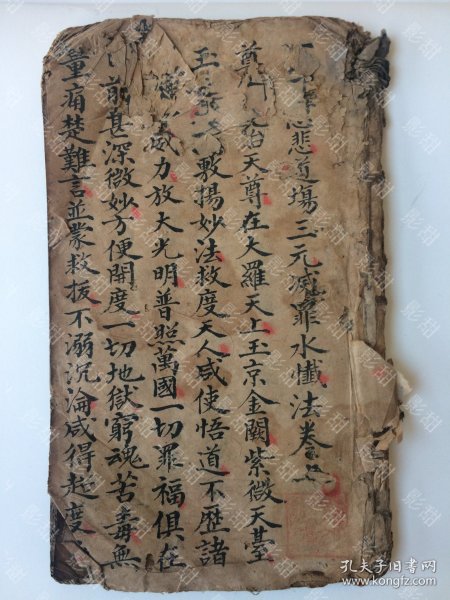 悲道塲三元滅罪水懺法卷
尊始天尊在大羅天上玉京金闕紫微天臺
玉敷揚妙法救度天人咸使悟道不歷諸
威力放大光明普照萬國一切罪福俱在
前甚深微妙方便開度一切地獄窮魂苦毒無
量痛楚難言並蒙救拔不溺沉淪咸得超度
影甜
孔夫子旧书网
www.kongfz.com